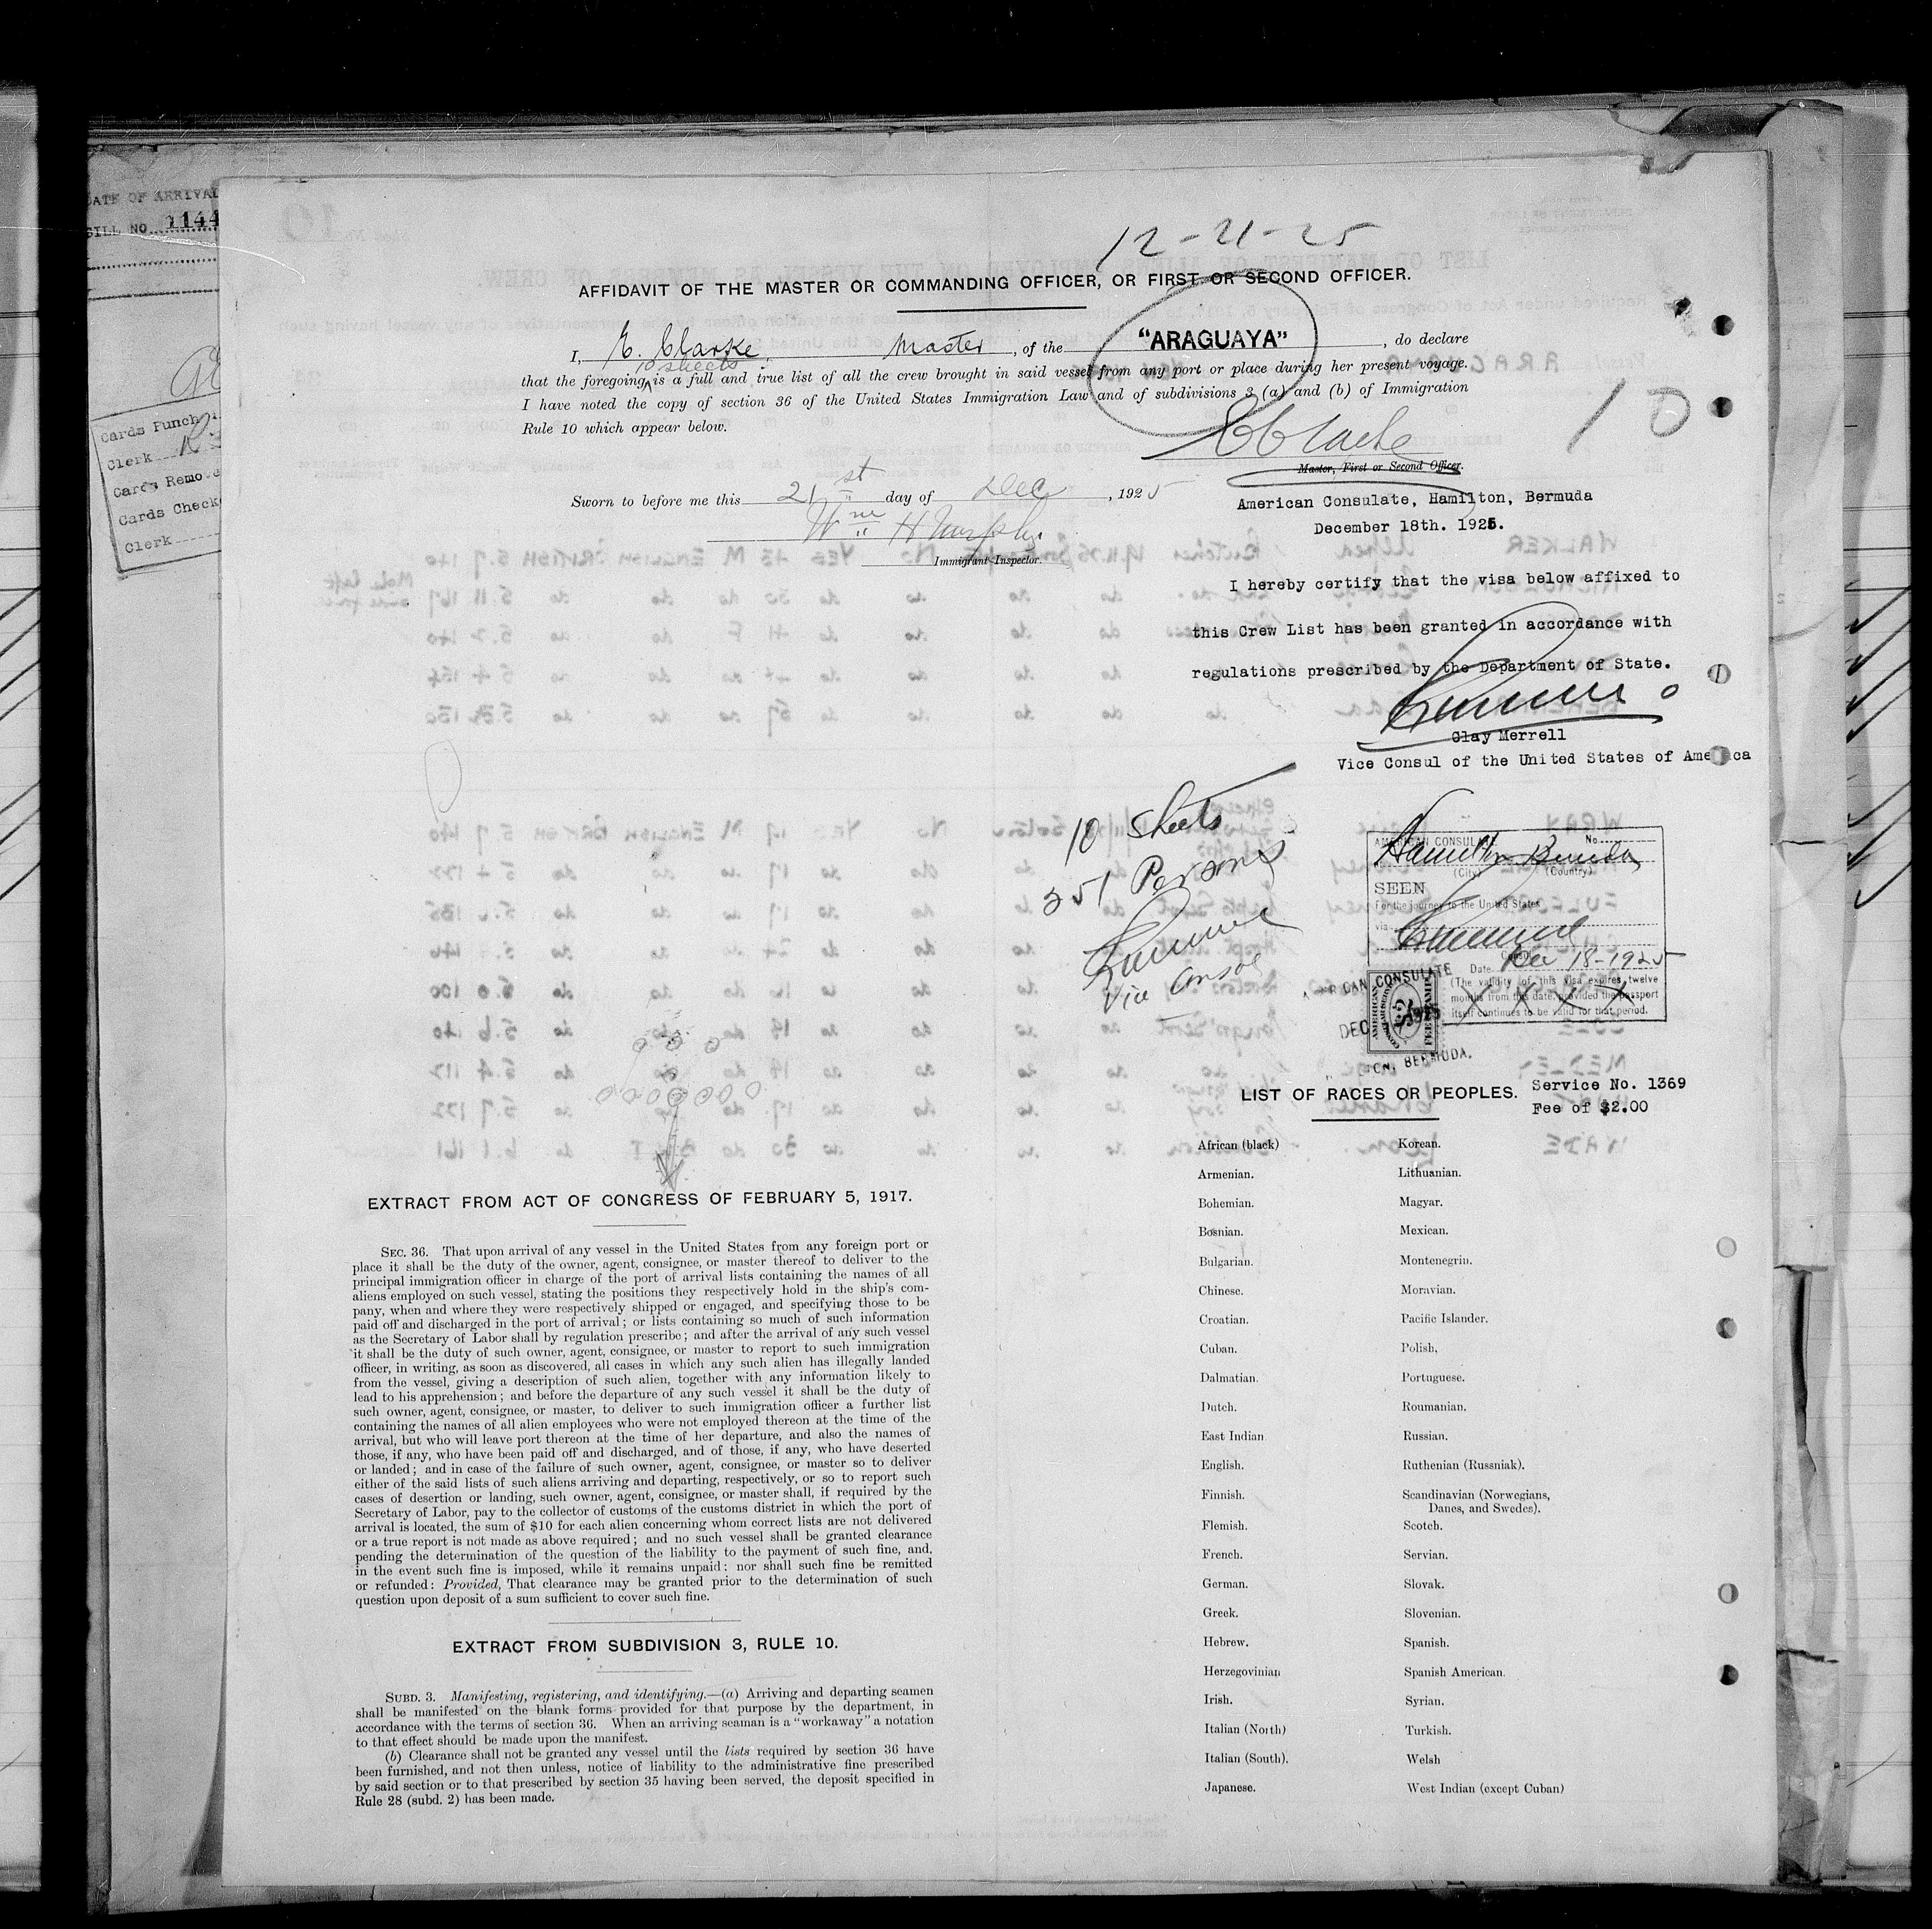 DATE OF ARRIVAL
GILL NO. 1144
Cards Punch
Clerk
Cards Remove
Cards Check
Clerk
12-21-25
AFFIDAVIT OF THE MASTER OR COMMANDING OFFICER, OR FIRST OR SECOND OFFICER.
I, E. Clarke, Master, of the "ARAGUAYA", do declare
10 sheets
that the foregoing is a full and true list of all the crew brought in said vessel from any port or place during her present voyage.
I have noted the copy of section 36 of the United States Immigration Law and of subdivisions 3 (a) and (b) of Immigration
Rule 10 which appear below.
10
E Clarke
Master, First or Second Officer.
Sworn to before me this 21st day of Dec, 1925
Wm H Murphy
Immigrant Inspector.
American Consulate, Hamilton, Bermuda
December 18th. 1925.
I hereby certify that the visa below affixed to
this Crew List has been granted in accordance with
regulations prescribed by the Department of State.
Clay Merrell
Vice Consul of the United States of America
10 Sheets
351 Persons
Vice Consul
AMERICAN CONSULATE No.
Hamilton Bermuda
(City) (Country)
SEEN
For the journey to the United States
via
Date Dec 18-1925
(The validity of this visa expires twelve
months from this date, provided the passport
itself continues to be valid for that period.
LIST OF RACES OR PEOPLES.
Service No. 1369
Fee of $2.00
African (black) Korean.
Armenian. Lithuanian.
Bohemian. Magyar.
Bosnian. Mexican.
Bulgarian. Montenegrin.
Chinese. Moravian.
Croatian. Pacific Islander.
Cuban. Polish.
Dalmatian. Portuguese.
Dutch. Roumanian.
East Indian Russian.
English. Ruthenian (Russniak).
Finnish. Scandinavian (Norwegians,
Danes, and Swedes).
Flemish. Scotch.
French. Servian.
German. Slovak.
Greek. Slovenian.
Hebrew. Spanish.
Herzegovinian Spanish American.
Irish. Syrian.
Italian (North) Turkish.
Italian (South). Welsh
Japanese. West Indian (except Cuban)
EXTRACT FROM ACT OF CONGRESS OF FEBRUARY 5, 1917.
SEC. 36. That upon arrival of any vessel in the United States from any foreign port or
place it shall be the duty of the owner, agent, consignee, or master thereof to deliver to the
principal immigration officer in charge of the port of arrival lists containing the names of all
aliens employed on such vessel, stating the positions they respectively hold in the ship's com-
pany, when and where they were respectively shipped or engaged, and specifying those to be
paid off and discharged in the port of arrival; or lists containing so much of such information
as the Secretary of Labor shall by regulation prescribe; and after the arrival of any such vessel
it shall be the duty of such owner, agent, consignee, or master to report to such immigration
officer, in writing, as soon as discovered, all cases in which any such alien has illegally landed
from the vessel, giving a description of such alien, together with any information likely to
lead to his apprehension; and before the departure of any such vessel it shall be the duty of
such owner, agent, consignee, or master, to deliver to such immigration officer a further list
containing the names of all alien employees who were not employed thereon at the time of the
arrival, but who will leave port thereon at the time of her departure, and also the names of
those, if any, who have been paid off and discharged, and of those, if any, who have deserted
or landed; and in case of the failure of such owner, agent, consignee, or master so to deliver
either of the said lists of such aliens arriving and departing, respectively, or so to report such
cases of desertion or landing, such owner, agent, consignee, or master shall, if required by the
Secretary of Labor, pay to the collector of customs of the customs district in which the port of
arrival is located, the sum of $10 for each alien concerning whom correct lists are not delivered
or a true report is not made as above required; and no such vessel shall be granted clearance
pending the determination of the question of the liability to the payment of such fine, and,
in the event such fine is imposed, while it remains unpaid; nor shall such fine be remitted
or refunded: Provided, That clearance may be granted prior to the determination of such
question upon deposit of a sum sufficient to cover such fine.
EXTRACT FROM SUBDIVISION 3, RULE 10.
SUBD. 3. Manifesting, registering, and identifying.—(a) Arriving and departing seamen
shall be manifested on the blank forms provided for that purpose by the department, in
accordance with the terms of section 36. When an arriving seaman is a "workaway" a notation
to that effect should be made upon the manifest.
(b) Clearance shall not be granted any vessel until the lists required by section 36 have
been furnished, and not then unless, notice of liability to the administrative fine prescribed
by said section or to that prescribed by section 35 having been served, the deposit specified in
Rule 28 (subd. 2) has been made.